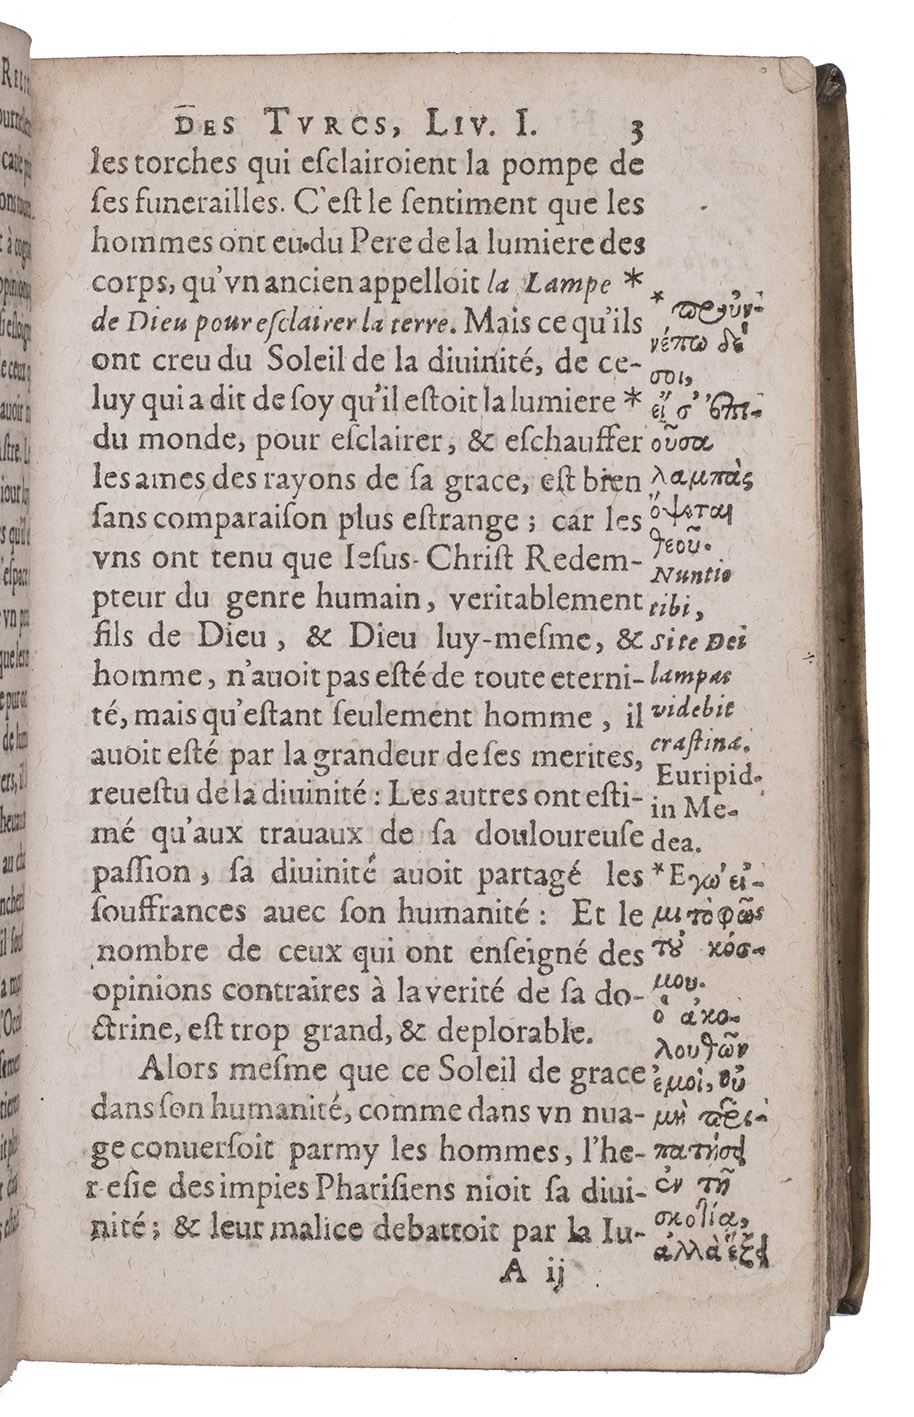 DES TVRCS, LIV. I. 3
les torches qui eſclairoient la pompe de
ſes funerailles. C'eſt le ſentiment que les
hommes ont eu du Pere de la lumiere des
corps, qu'vn ancien appelloit la Lampe *
de Dieu pour eſclairer la terre. Mais ce qu'ils
ont creu du Soleil de la diuinité, de ce-
luy qui a dit de ſoy qu'il eſtoit la lumiere *
du monde, pour eſclairer, & eſchauffer
les ames des rayons de ſa grace, eſt bien
ſans comparaiſon plus eſtrange ; car les
vns ont tenu que Ieſus-Chriſt Redem-
pteur du genre humain, veritablement
fils de Dieu, & Dieu luy-meſme, &
homme, n'auoit pas eſté de toute eterni-
té, mais qu'eſtant ſeulement homme, il
auoit eſté par la grandeur de ſes merites,
reueſtu de la diuinité : Les autres ont eſti-
mé qu'aux trauaux de ſa douloureuſe
paſſion, ſa diuinité auoit partagé les
ſouffrances auec ſon humanité : Et le
nombre de ceux qui ont enſeigné des
opinions contraires à la verité de ſa do-
ctrine, eſt trop grand, & deplorable.
Alors meſme que ce Soleil de grace
dans ſon humanité, comme dans vn nua-
ge conuerſoit parmy les hommes, l'he-
reſie des impies Phariſiens nioit ſa diui-
nité ; & leur malice debattoit par la Iu-
A ij
*
σοι,
εἴ σ'
οὖσα
λαμπὰς
ὄψεται
θεοῦ.
Nuntio
tibi,
Si te Dei
lampas
videbit
craſtina.
Euripid.
in Me-
dea.
*Εγώ εἰ-
μι τὸ φῶς
τοῦ κόσ-
μου.
ὁ ἀκο-
λουθῶν
ἐμοὶ, οὐ
μὴ περι-
πατήσῃ
ἐν τῇ
σκοτίᾳ,
ἀλλὰ ἕξει